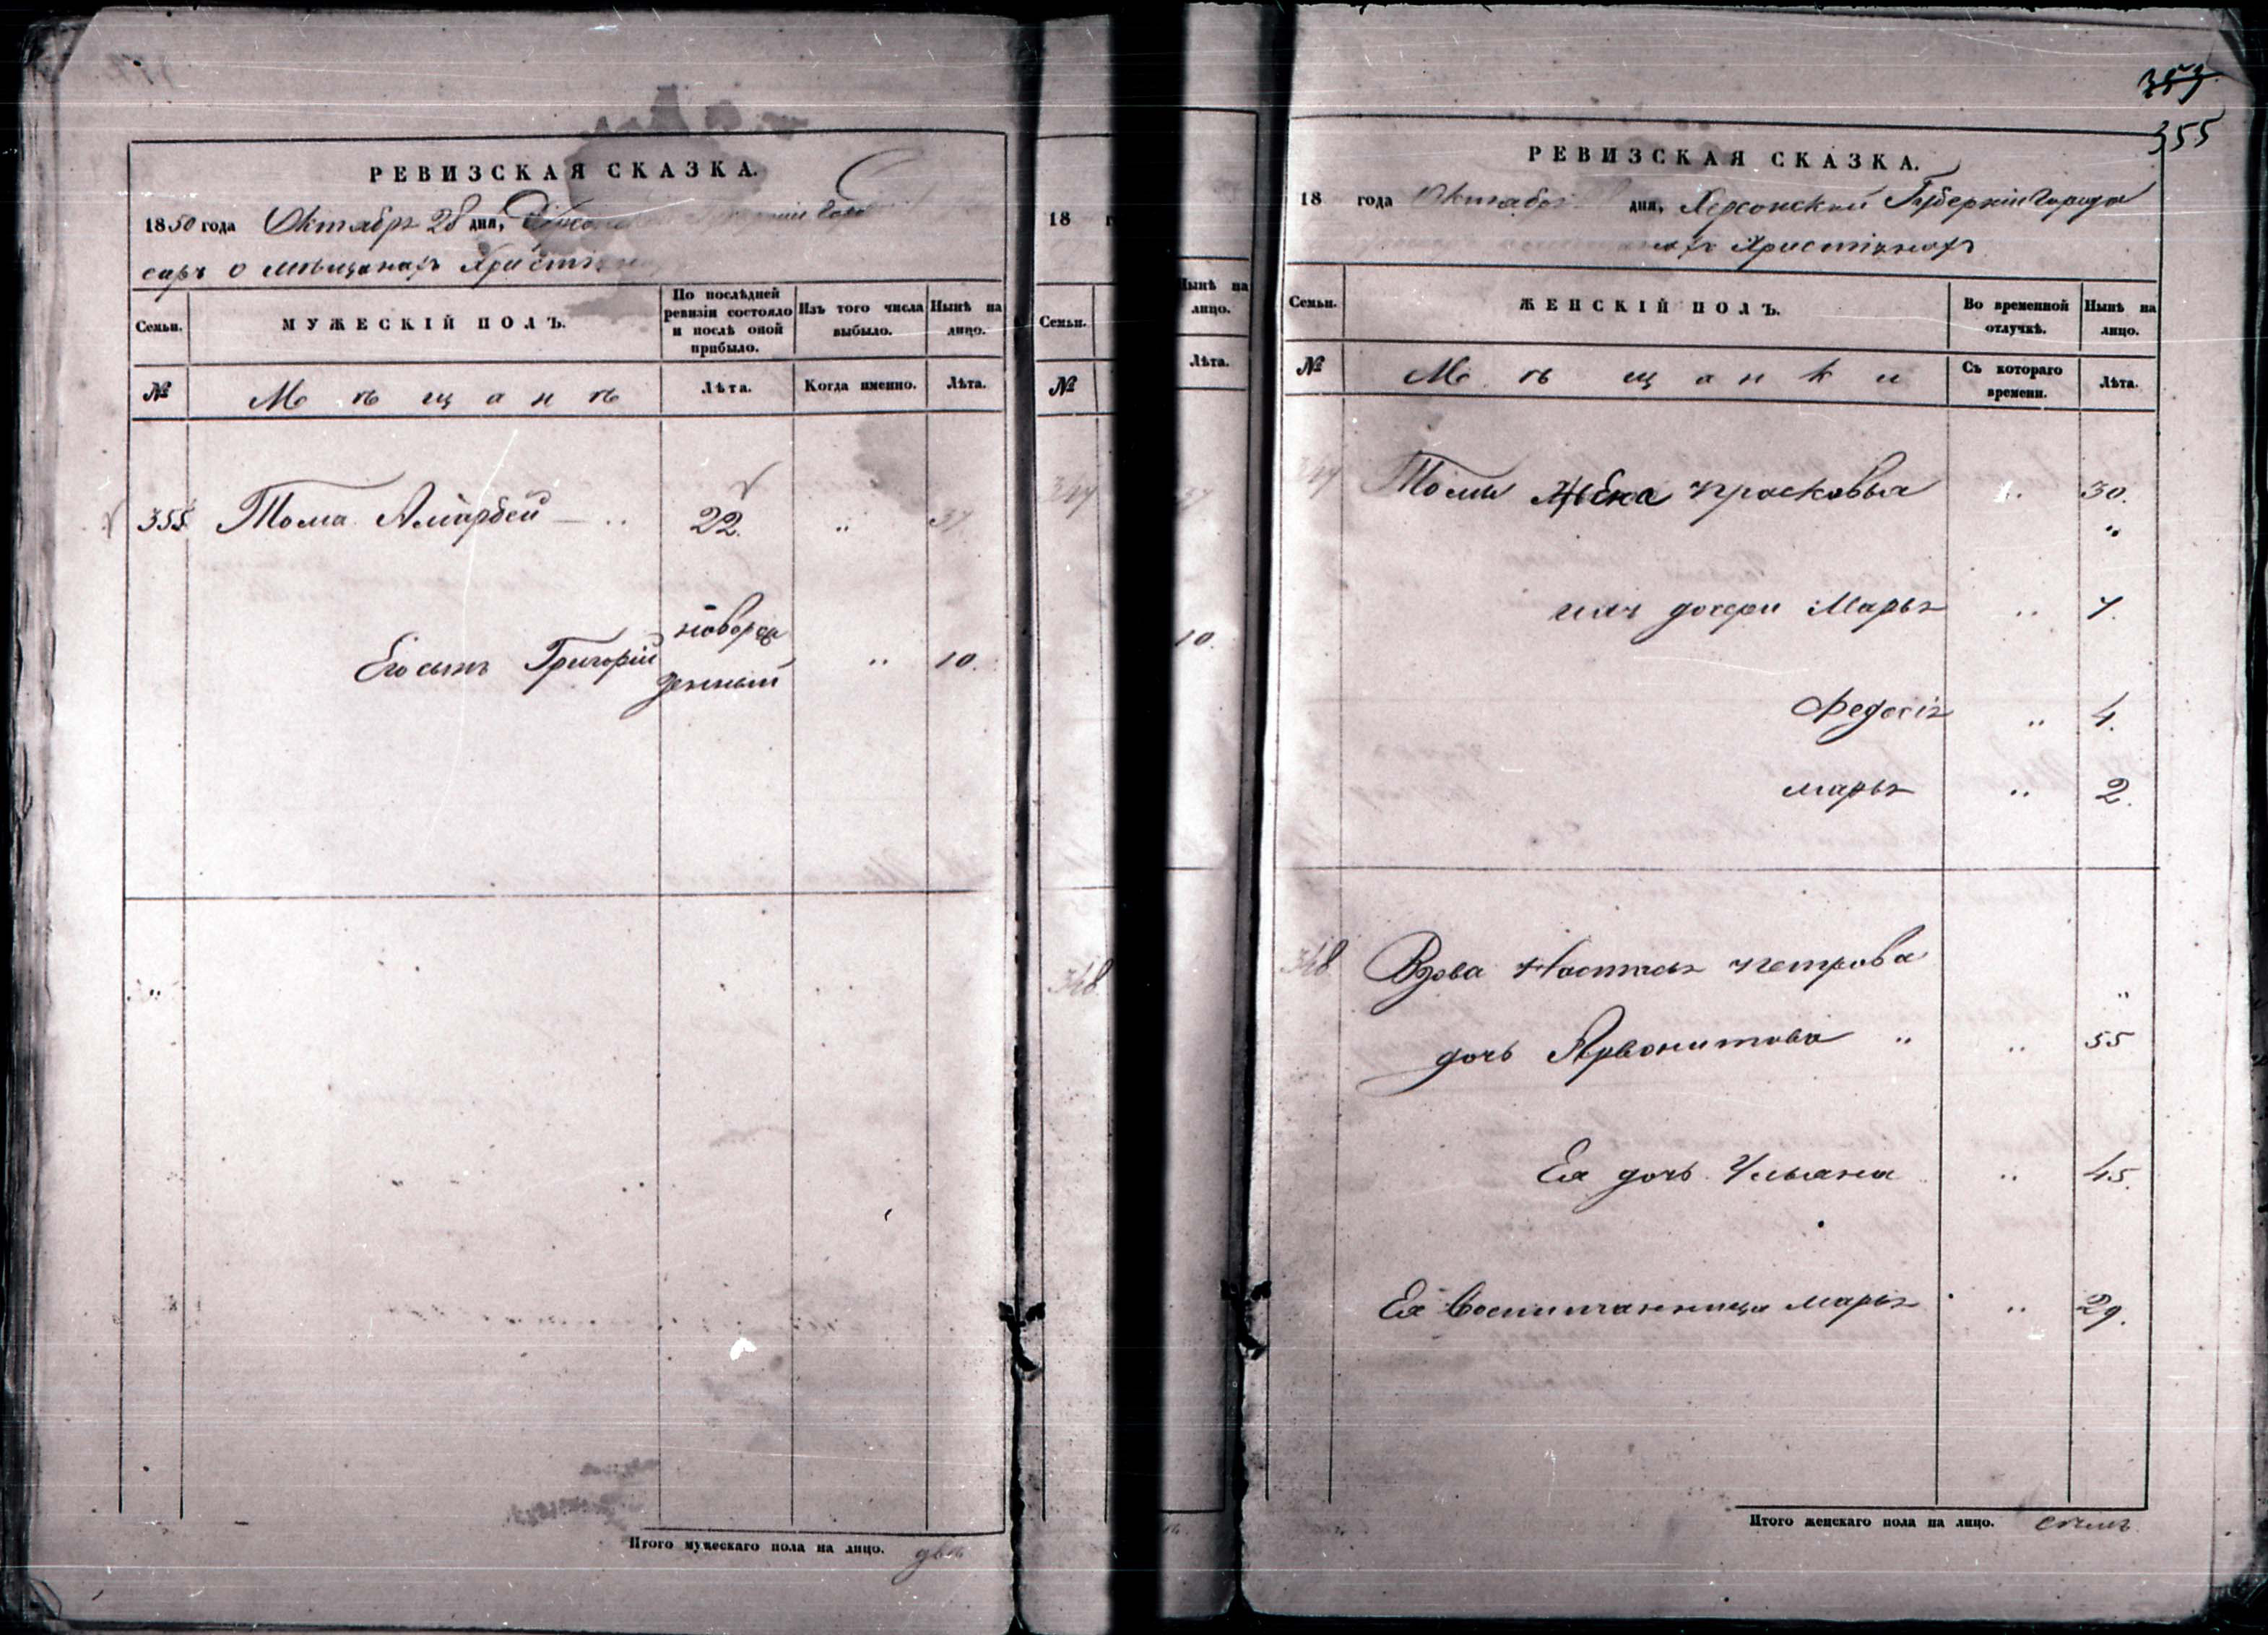 РЕВИЗСКАЯ СКАЗКА.
1850 года Октября 28 дня,
о мѣщанахъ Христіанахъ
Семьи.
МУЖЕСКІЙ ПОЛЪ.
По послѣдней ревизіи состояло и послѣ оной прибыло.
Изъ того числа выбыло.
Нынѣ на лицо.
№
Мѣщанъ
Лѣта.
Когда именно.
Лѣта.
355 Тома 22. „ 37
Его сынъ Григорій новорожденный „ 10.
„
Итого мужескаго пола на лицо. два
18
Семьи.
№
347
348
Нынѣ на лицо.
Лѣта.
37
10.
359
355
РЕВИЗСКАЯ СКАЗКА.
18 года Октября дня, Херсонской Губерніи Города
Христіанахъ
Семьи.
ЖЕНСКІЙ ПОЛЪ.
Во временной отлучкѣ.
Нынѣ на лицо.
№
Мѣщанки
Съ котораго времени.
Лѣта.
347 Томы жена Прасковья „ 30.
„
ихъ дочери Марья „ 7.
Федосія „ 4.
Марья „ 2.
348 Вдова Настасья Петрова
„
дочь „ „ 55
Ея дочь Ульяна „ 45.
Ея воспитанница Марья „ 29.
Итого женскаго пола на лицо. семь